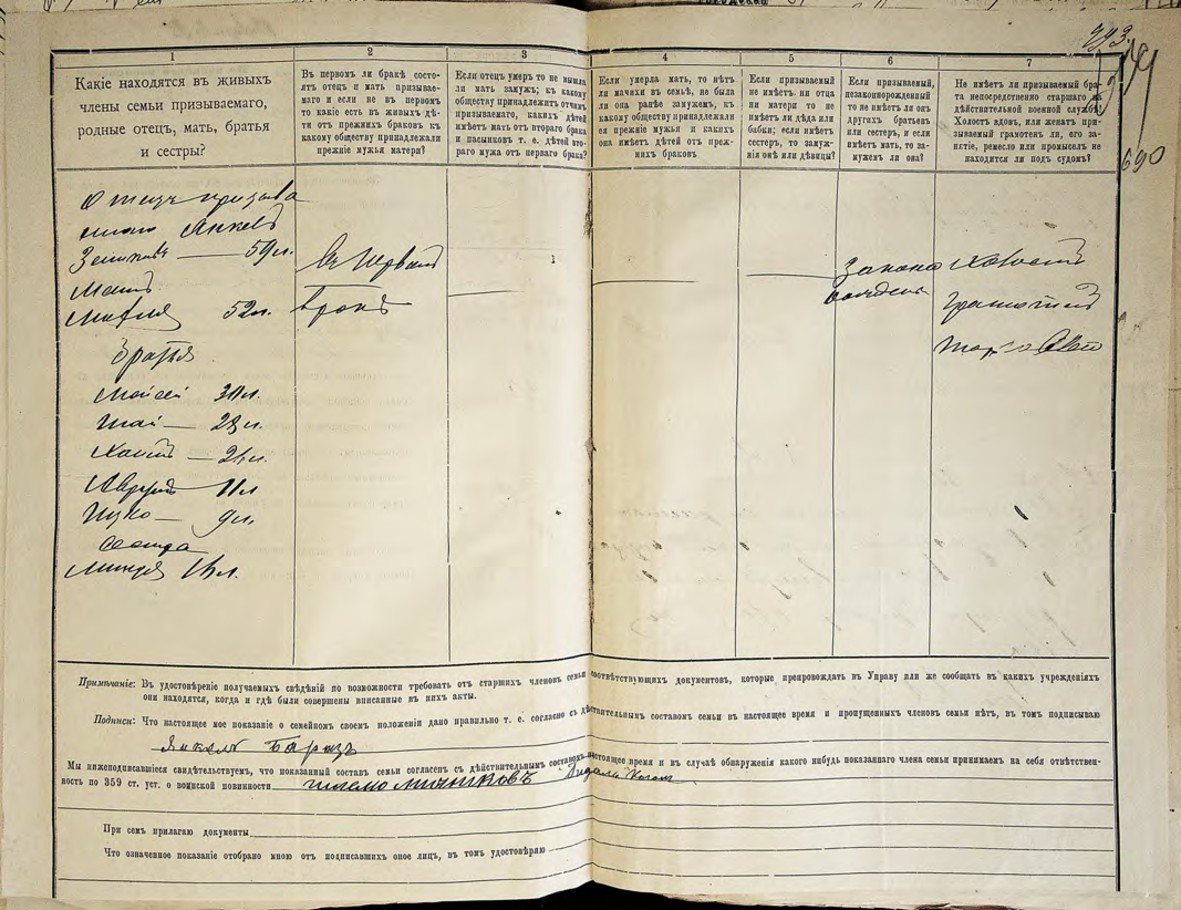 993.
690
1 2 3 4 5 6 7
Какіе находятся въ живыхъ
члены семьи призываемаго,
родные отецъ, мать, братья
и сестры?
Въ первомъ ли бракѣ состо-
ятъ отецъ и мать призывае-
маго и если не въ первомъ
то какіе есть въ живыхъ дѣ-
ти отъ прежнихъ браковъ къ
какому обществу принадлежали
прежніе мужья матери?
Если отецъ умеръ то не вышла
ли мать замужъ; къ какому
обществу принадлежитъ отчимъ
призываемаго, какихъ дѣтей
имѣетъ мать отъ втораго брака
и пасынковъ т. е. дѣтей вто-
раго мужа отъ перваго брака?
Если умерла мать, то нѣтъ
ли мачихи въ семьѣ, не была
ли она ранѣе замужемъ, къ
какому обществу принадлежали
ея прежніе мужья и какихъ
она имѣетъ дѣтей отъ преж-
нихъ браковъ
Если призываемый
не имѣетъ ни отца
ни матери то не
имѣетъ ли дѣда или
бабки; если имѣетъ
сестеръ, то замуж-
нія онѣ или дѣвицы?
Если призываемый,
незаконнорожденный
то не имѣетъ ли онъ
другихъ братьевъ
или сестеръ, и если
имѣетъ мать, то за-
мужемъ ли она?
Не имѣетъ ли призываемый бра-
та непосредственно старшаго на
дѣйствительной военной службѣ?
Холостъ вдовъ, или женатъ при-
зываемый грамотенъ ли, его за-
нятіе, ремесло или промыселъ не
находится ли подъ судомъ?
Отецъ призыва
емаго Янкель
59 л.
Мать
52 л.
Братья
Мойсей 30 л.
Шая — 28 л.
Хаимъ —
11 л
9 л.
Сестра
Миндля
Въ первомъ
бракѣ
Законно
рожденъ
Холостъ
Грамотный
Примѣчаніе: Въ удостовѣреніе получаемыхъ свѣдѣній по возможности требовать отъ старшихъ членовъ семьи соотвѣтствующихъ документовъ, которые препровождать въ Управу или же сообщать въ какихъ учрежденіяхъ
они находятся, когда и гдѣ были совершены вписанные въ нихъ акты.
Подписи: Что настоящее мое показаніе о семейномъ своемъ положеніи дано правильно т. е. согласно съ дѣйствительнымъ составомъ семьи въ настоящее время и пропущенныхъ членовъ семьи нѣтъ, въ томъ подписываю
Янкель Баразъ
Мы нижеподписавшіеся свидѣтельствуемъ, что показанный составъ семьи согласенъ съ дѣйствительнымъ составомъ въ настоящее время и въ случаѣ обнаруженія какого нибудь показаннаго члена семьи принимаемъ на себя отвѣтствен-
ность по 359 ст. уст. о воинской повинности Шлемо Мичниковъ
При семъ прилагаю документы
Что означенное показаніе отобрано мною отъ подписавшихъ оное лицъ, въ томъ удостовѣряю